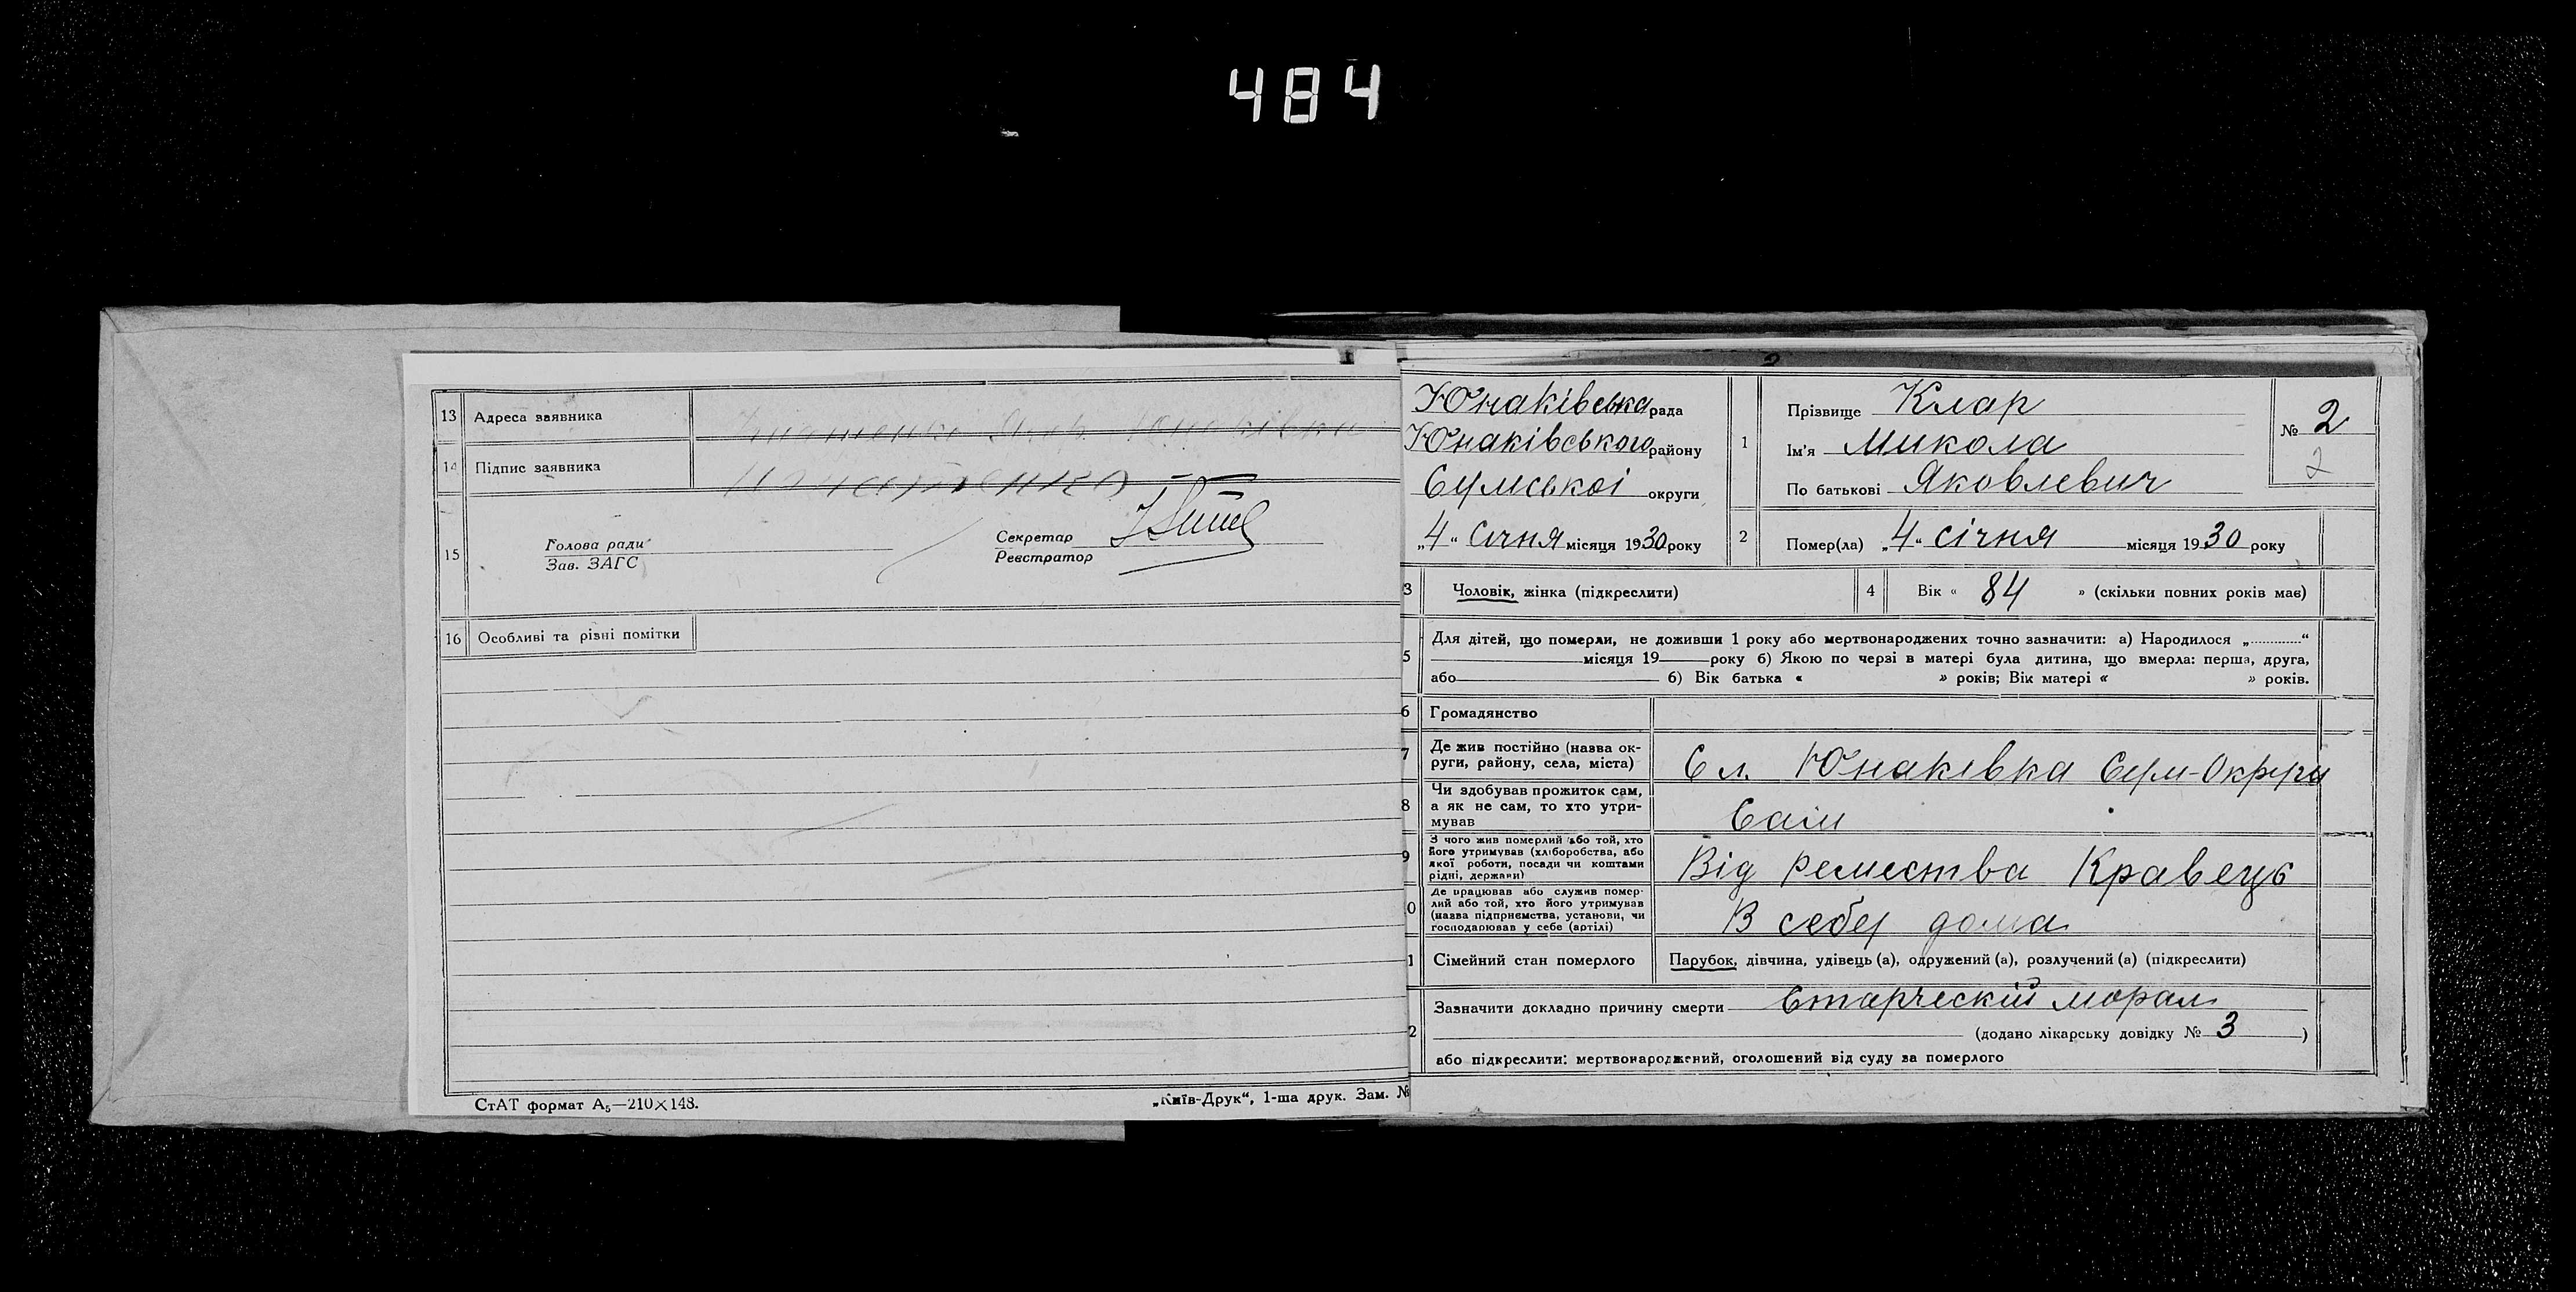 484
13 Адреса заявника
14 Підпис заявника
15 Голова ради
Зав. ЗАГС
Секретар
Реєстратор
16 Особливі та різні помітки
СтАТ формат А5—210×148.
„Київ-Друк“, 1-ша друк. Зам. №
Юнаківська рада
Юнаківського району
Сумської округи
„4“ Січня місяця 1930 року
1 Прізвище Клар
Ім'я Микола
По батькові Яковлевич
№ 2
2
2 Помер(ла) „4“ січня місяця 1930 року
3 Чоловік, жінка (підкреслити)
4 Вік « 84 » (скільки повних років має)
5 Для дітей, що померли, не доживши 1 року або мертвонароджених точно зазначити: а) Народилося „............“
місяця 19 року б) Якою по черзі в матері була дитина, що вмерла: перша, друга,
або 6) Вік батька « » років; Вік матері « » років.
6 Громадянство
7 Де жив постійно (назва ок-
руги, району, села, міста) Сл. Юнаківка Сум-Округи
8 Чи здобував прожиток сам,
а як не сам, то хто утри-
мував Сам
9 З чого жив померлий або той, хто
його утримував (хліборобства, або
якої роботи, посади чи коштами
рідні, держави) Від ремества Кравець
0 Де працював або служив помер-
лий або той, хто його утримував
(назва підприємства, установи, чи
господарював у себе (артілі) В себе дома
1 Сімейний стан померлого Парубок, дівчина, удівець (а), одружений (а), розлучений (а) (підкреслити)
2 Зазначити докладно причину смерти Старческій
(додано лікарську довідку № 3 )
або підкреслити: мертвонароджений, оголошений від суду за померлого